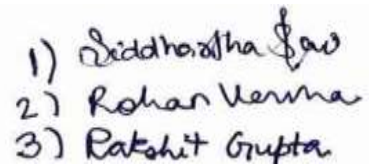 1) Siddhartha Sao
2) Rohan Verma
3) Rakshit Gupta